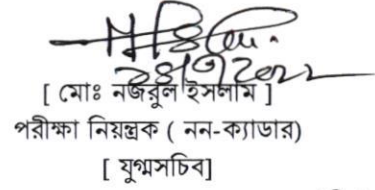 [ মোঃ নজরুল ইসলাম ]
পরীক্ষা নিয়ন্ত্রক ( নন-ক্যাডার)
[ যুগ্মসচিব]